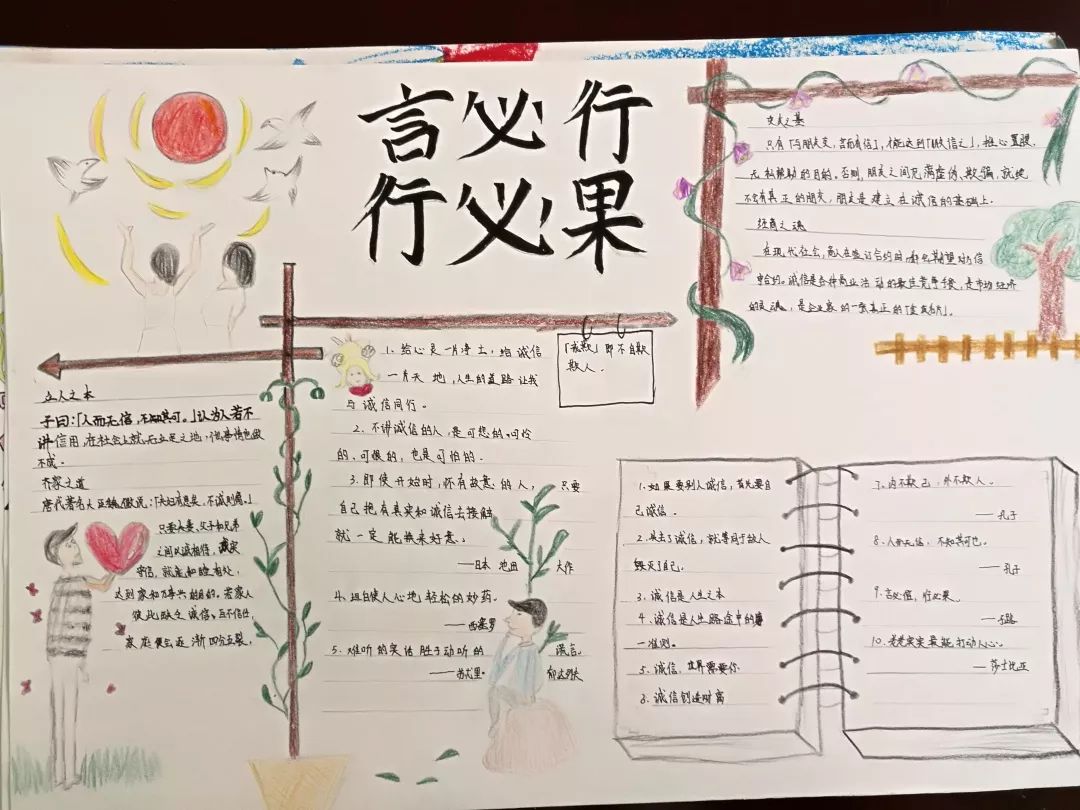 言必行
行必果
交友之基
只有「与朋友交，言而有信」，才能达到「朋友信之」，推心置腹、
无私帮助的目的。否则，朋友之间充满虚伪、欺骗，就绝
不会有真正的朋友，朋友是建立在诚信的基础上。
经商之魂
在现代社会，商人在签订合约时，都会期望对方信
守合约。诚信是各种商业活动的最佳竞争手段，是市场经济
的灵魂，是企业家的一张真正的「金质名片」。
立人之本
子曰：「人而无信，不知其可。」认为人若不
讲信用，在社会上就无立足之地，什么事情也做
不成。
齐家之道
唐代著名大臣魏徵说：「夫妇有恩矣，不诚则离。」
只要夫妻、父子和兄弟
之间以诚相待，诚实
守信，就能和睦相处，
达到家和万事兴的目的。若家人
彼此缺乏诚信、互不信任，
家庭便会逐渐四分五裂。
1、给心灵一片净土，给诚信
一片天地，人生的道路让我
与诚信同行。
2、不讲诚信的人，是可悲的、可怜
的、可恨的，也是可怕的。
3、即使开始时，怀有敌意的人，只要
自己抱有真实和诚信去接触
就一定能换来好意。
——日本 池田大作
4、坦白使人心地轻松的妙药。
——西塞罗
5、难听的实话胜于动听的谎言。
——苏尤里·邦达列夫
「我欺」即不自欺
欺人。
1、如果要别人诚信，首先要自
己诚信。
2、失去了诚信，就等同于敌人
毁灭了自己。
3、诚信是人生之本
4、诚信是人生路途中的第
一准则。
5、诚信，世界需要你
6、诚信创造财富
7、内不欺己，外不欺人。
——孔子
8、人而无信，不知其可也。
——孔子
9、言必信，行必果。
——子路
10、老老实实最能打动人心。
——莎士比亚